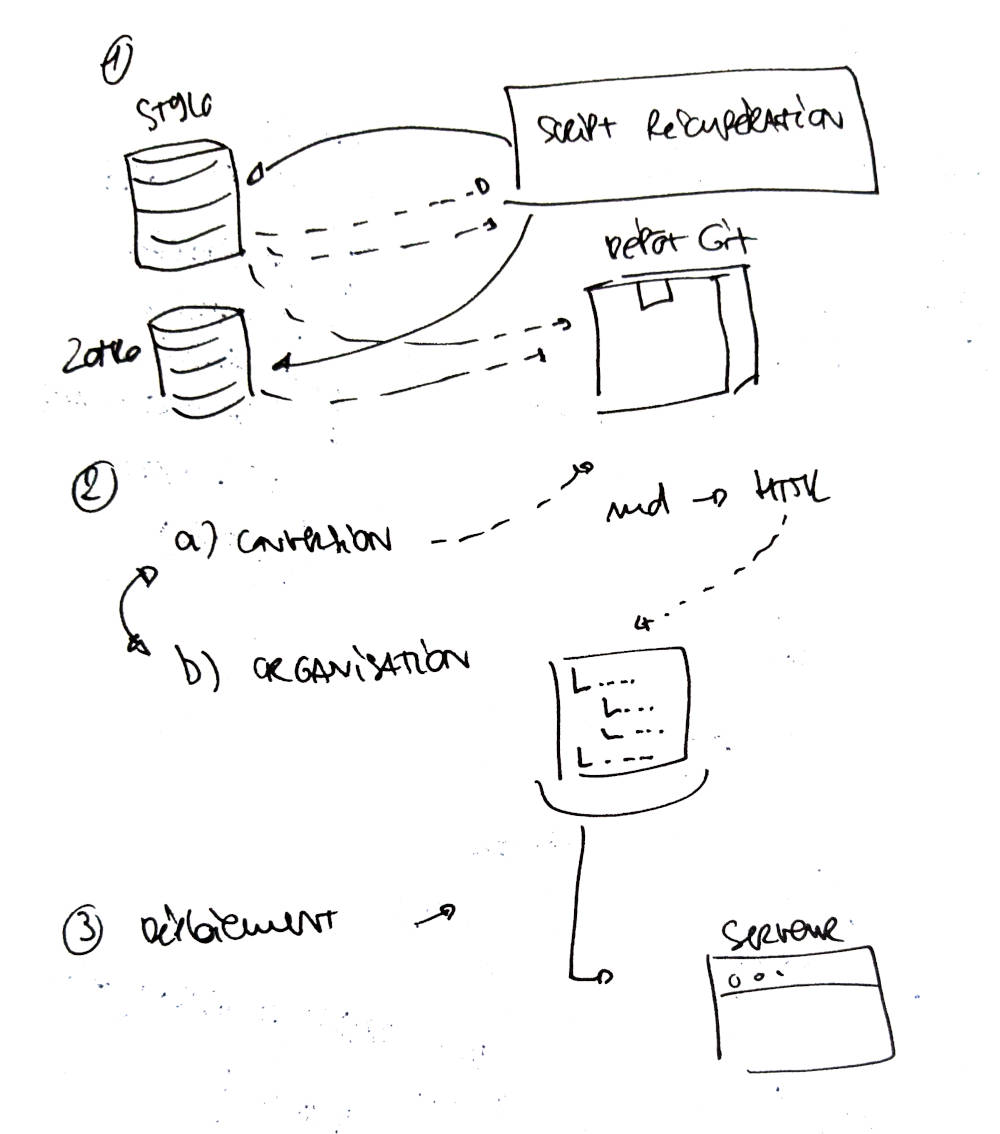 1
Stylo
Script Récupération
Dépot Git
Zotero
2
md → HTML
a) Conversion
b) ORGANISATION
3 Déploiement
Serveur